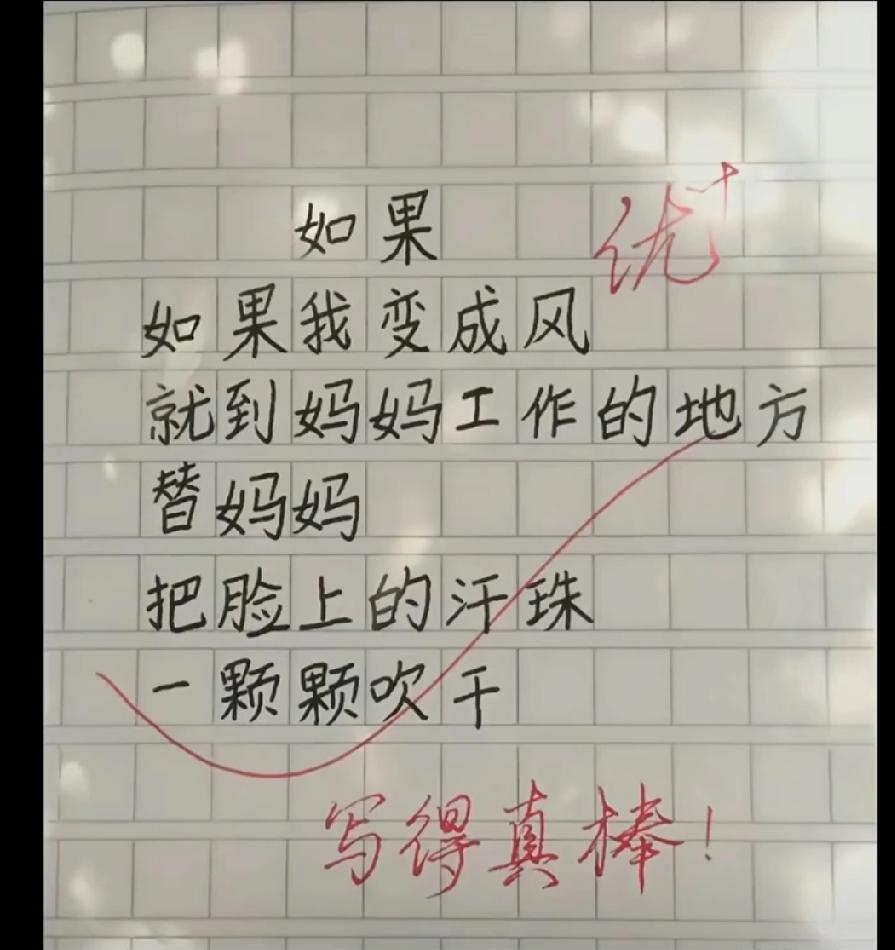 如果
优+
如果我变成风
就到妈妈工作的地方
替妈妈
把脸上的汗珠
一颗颗吹干
写得真棒!